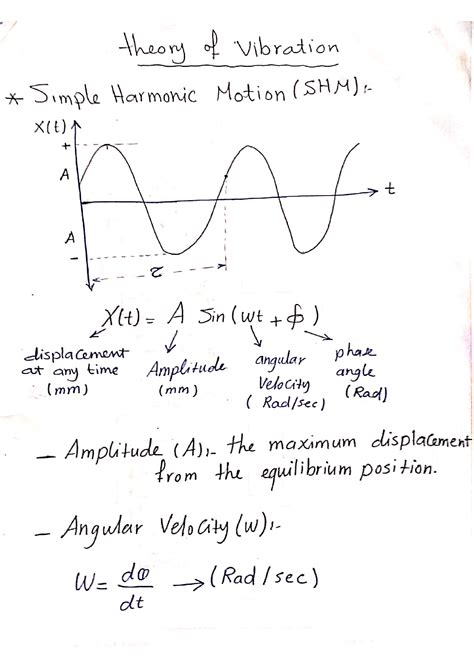 theory of Vibration
* Simple Harmonic Motion (SHM):-
X(t)
+
A
t
A
-
τ
X(t) = A Sin(wt + φ)
displacement at any time (mm)
Amplitude (mm)
angular Velocity (Rad/sec)
phase angle (Rad)
– Amplitude (A):- the maximum displacement
from the equilibrium position.
– Angular Velocity (w):-
W = dφ/dt → (Rad/sec)